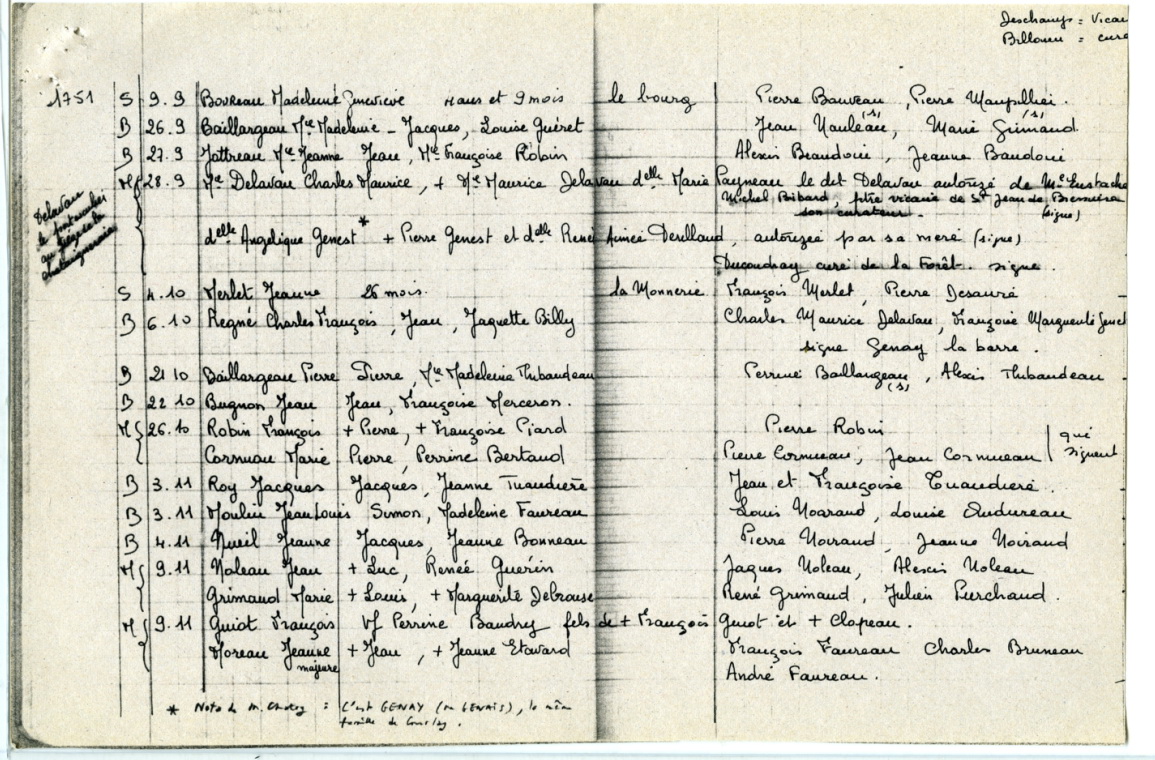 Deschamps = Vicai
Billouin = curé
1751 S 9.9 Boureau Madeleine Geneviève 4 ans et 9 mois le bourg Pierre Bauveau, Pierre Maupillier.
B 26.9 Baillargeau Mie Madeleine - Jacques, Louise Guéret Jean Nauleau, (s) Marie Grimaud. (s)
B 27.9 Jattreau Mie Jeanne Jean, Mie Françoise Robin Alexis Beaudoin, Jeanne Baudoin
M 28.9 Me Delavau Charles Maurice, + Me Maurice Delavau delle Marie Payneau le dit Delavau autorizé de Me Eustache
Michel Bibard, ptre vicaire de St Jean de
son curateur. (signe)
Delavau
delle Angélique Genest * + Pierre Genest et delle Renée Aimée Derillaud, autorizée par sa mère (signe)
Ducoudray curé de la Forêt. signe.
S 4.10 Merlet Jeanne 26 mois. la Monnerie François Merlet, Pierre Desauré
B 6.10 Regné Charles François, Jean, Jaquette Billy Charles Maurice Delavau, Françoise Marguerite Genest
signe Genay la barre.
B 21 10 Baillargeau Pierre Pierre, Mie Madeleine Thibaudeau Perrine Baillargeau (s), Alexis Thibaudeau
B 22 10 Bugnon Jean Jean, Françoise Merceron.
M 26.10 Robin François + Pierre, + Françoise Piard Pierre Robin
Cormuau Marie Pierre, Perrine Bertaud Pierre Cormueau, Jean Cormueau qui signent
B 3.11 Roy Jacques Jacques, Jeanne Tuaudière Jean et Françoise Tuaudière.
B 3.11 Moulin Jean Louis Simon, Madeleine Faureau Louis Noiraud, Louise Audureau
B 4.11 Nueil Jeanne Jacques, Jeanne Bonneau Pierre Noiraud, Jeanne Noiraud
M 9.11 Noleau Jean + Luc, Renée Guérin Jaques Noleau, Alexis Noleau
Grimaud Marie + Louis, + Marguerite Debrouse René Grimaud, Julien Purchaud.
M 9.11 Guiot François Vf Perrine Baudry fils de + François Guiot et + Clopeau.
Moreau Jeanne + Jean, + Jeanne Etavard François Faureau Charles Bruneau
majeure
André Faureau.
* Note de M. : C'est GENAY (ou GENAIS), la même
famille de